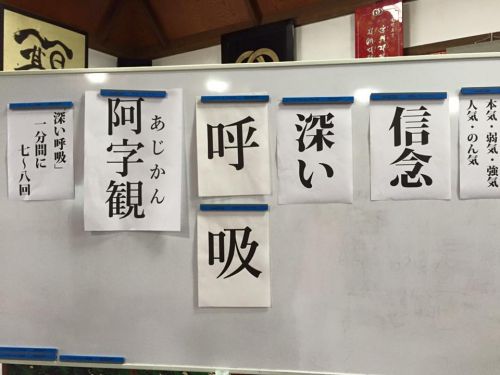 本気・弱気・強気
人気・のん気
信念
深い
呼
吸
阿字観
あじかん
深い呼吸」
一分間に
七〜八回